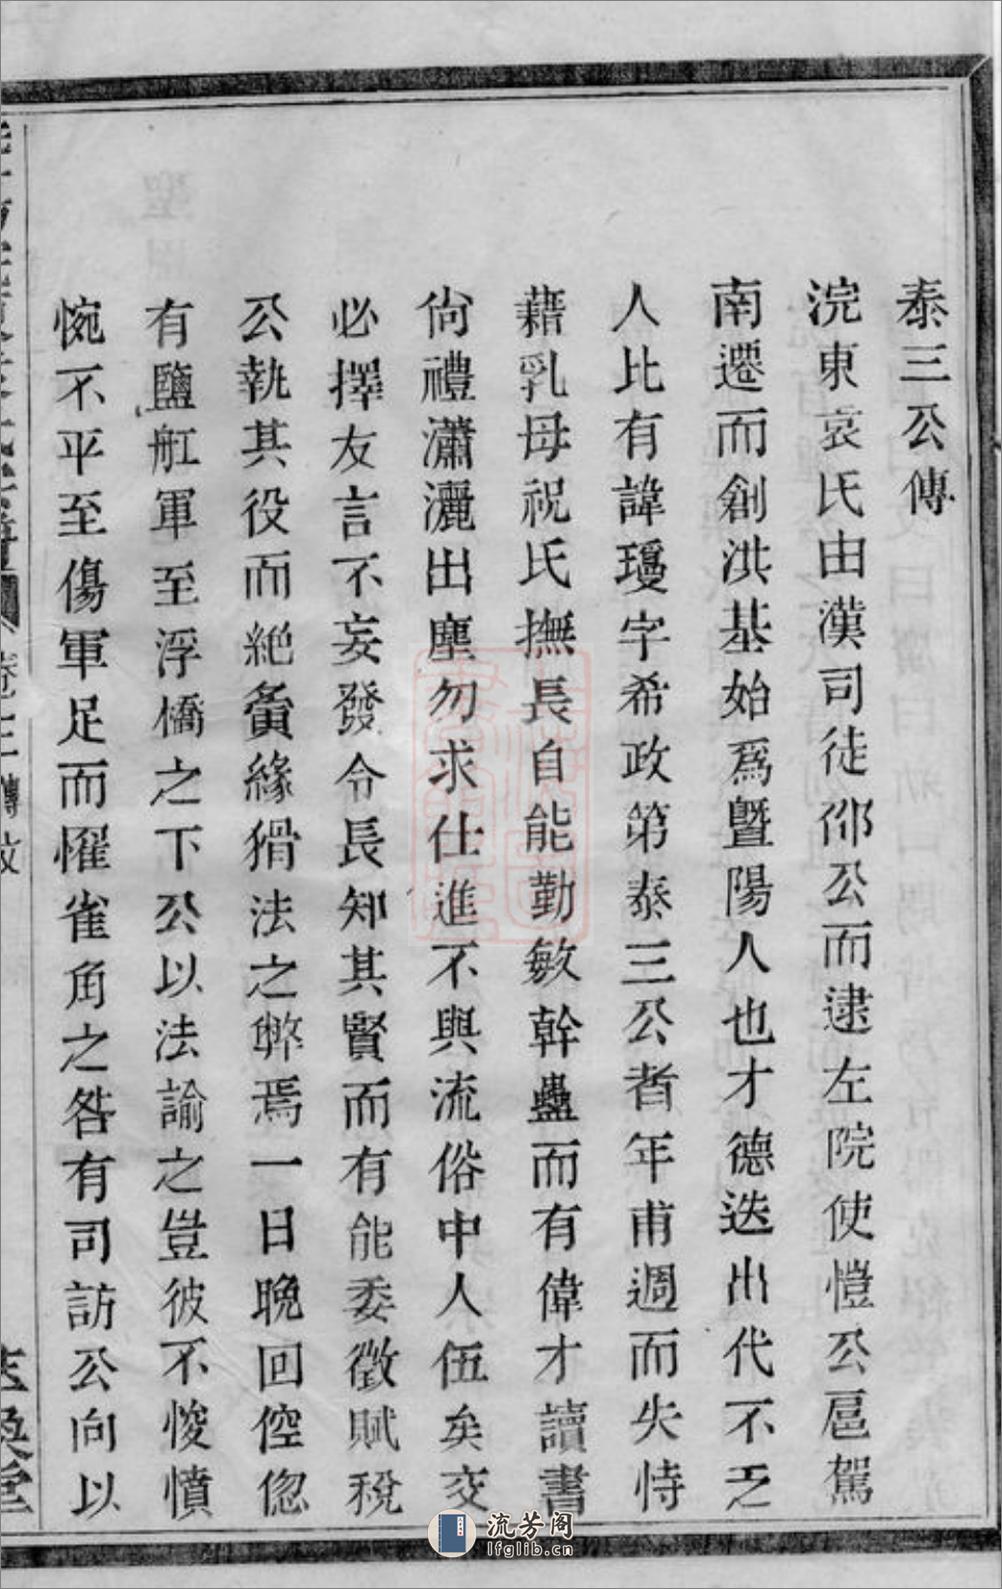 泰三公傳
浣東袁氏由漢司徒邵公而逮左院使愷公扈駕
南遷而創洪基始爲曁陽人也才德迭出代不乏
人比有諱瓊字希政第泰三公者年甫週而失恃
藉乳母祝氏撫長自能勤敏幹蠱而有偉才讀書
尙禮瀟灑出塵勿求仕進不與流俗中人伍矣交
必擇友言不妄發令長知其賢而有能委徵賦稅
公執其役而絕夤緣猾法之弊焉一日晚回倥偬
有鹽舡軍至浮橋之下公以法諭之豈彼不悛憤
惋不平至傷軍足而罹雀角之咎有司訪公向以
卷三 傳文
流芳阁
lfglib.cn